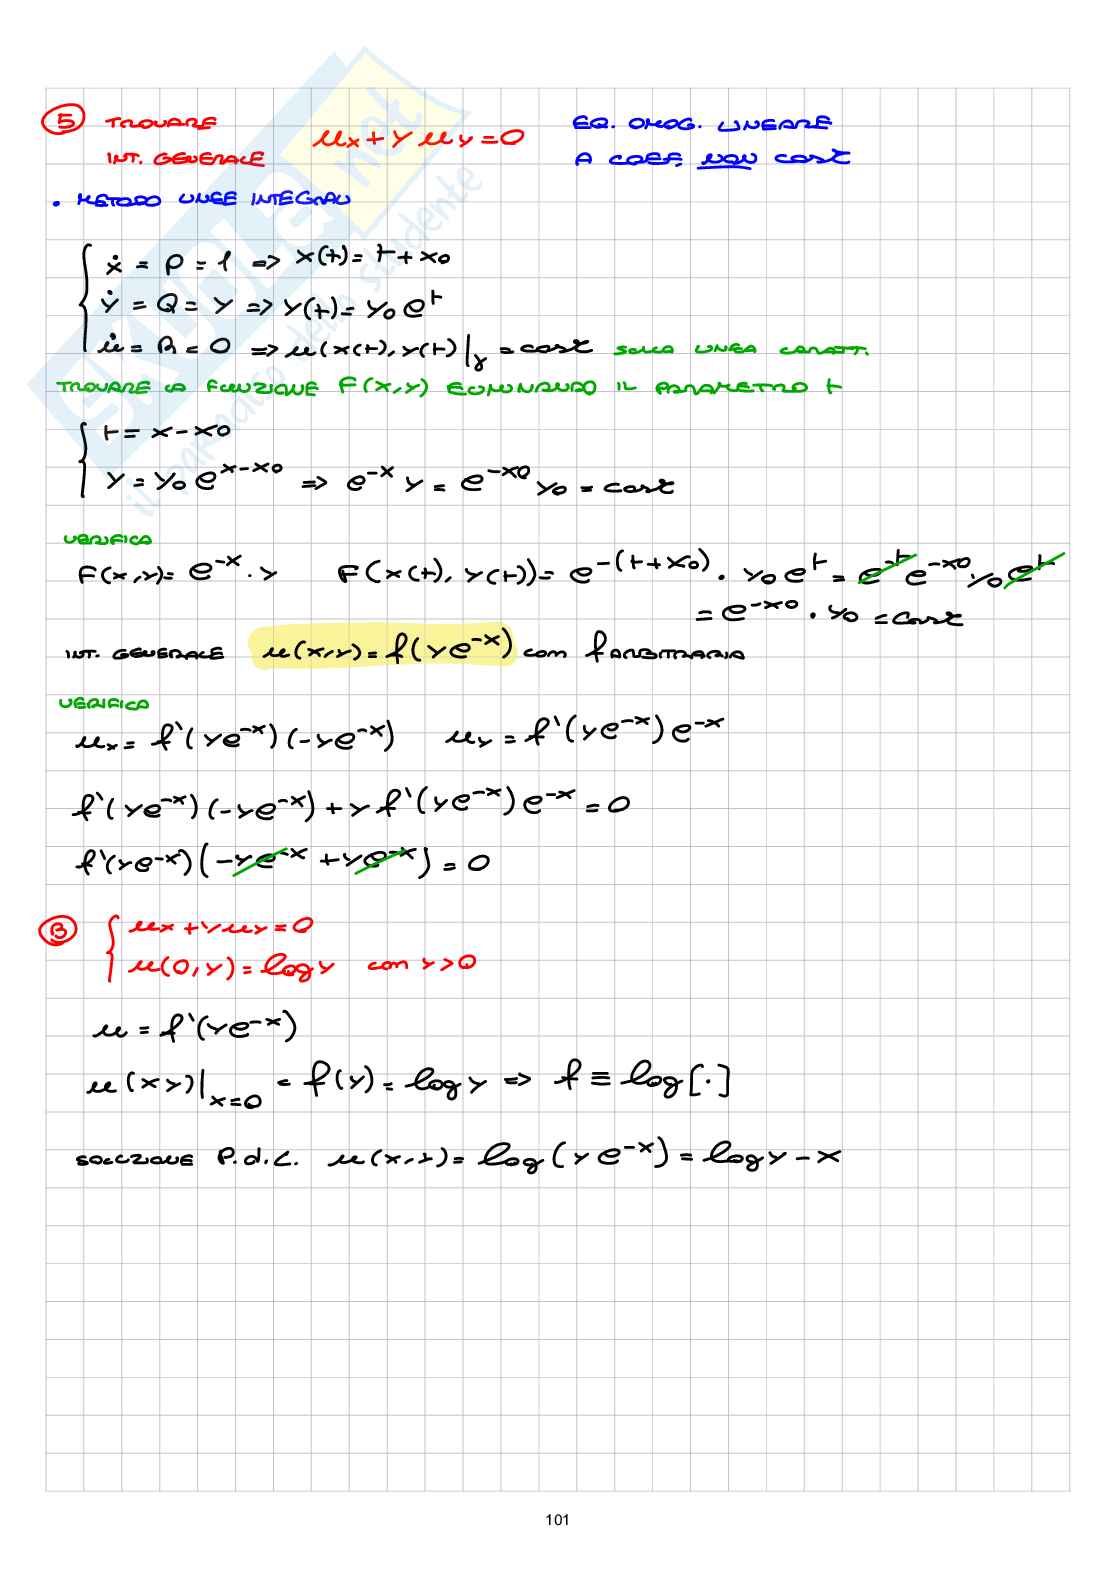 5 TROVARE INT. GENERALE u_x + y u_y = 0 EQ. OMOG. LINEARE A COEF. NON COST
• METODO LINEE INTEGRALI
{ ẋ = P = 1 => x(t) = t + x0
ẏ = Q = y => y(t) = y0 e^t
u̇ = R = 0 => u(x(t), y(t))|_γ = cost SULLA LINEA CARATT.
TROVARE LA FUNZIONE F(x,y) ELIMINANDO IL PARAMETRO t
{ t = x - x0
y = y0 e^{x-x0} => e^{-x} y = e^{-x0} y0 = cost
VERIFICA
F(x,y) = e^{-x} · y F(x(t), y(t)) = e^{-(t+x0)} · y0 e^t = e^{-t} e^{-x0} y0 e^t
= e^{-x0} · y0 = cost
INT. GENERALE u(x,y) = f(y e^{-x}) con f ARBITRARIA
VERIFICA
u_x = f'(y e^{-x}) (-y e^{-x}) u_y = f'(y e^{-x}) e^{-x}
f'(y e^{-x}) (-y e^{-x}) + y f'(y e^{-x}) e^{-x} = 0
f'(y e^{-x}) (-y e^{-x} + y e^{-x}) = 0
B { u_x + y u_y = 0
u(0,y) = log y con y > 0
u = f'(y e^{-x})
u(x y)|_{x=0} = f(y) = log y => f ≡ log[·]
SOLUZIONE P.d.C. u(x,y) = log(y e^{-x}) = log y - x
101
SKUOLA.net
il paradiso dello studente